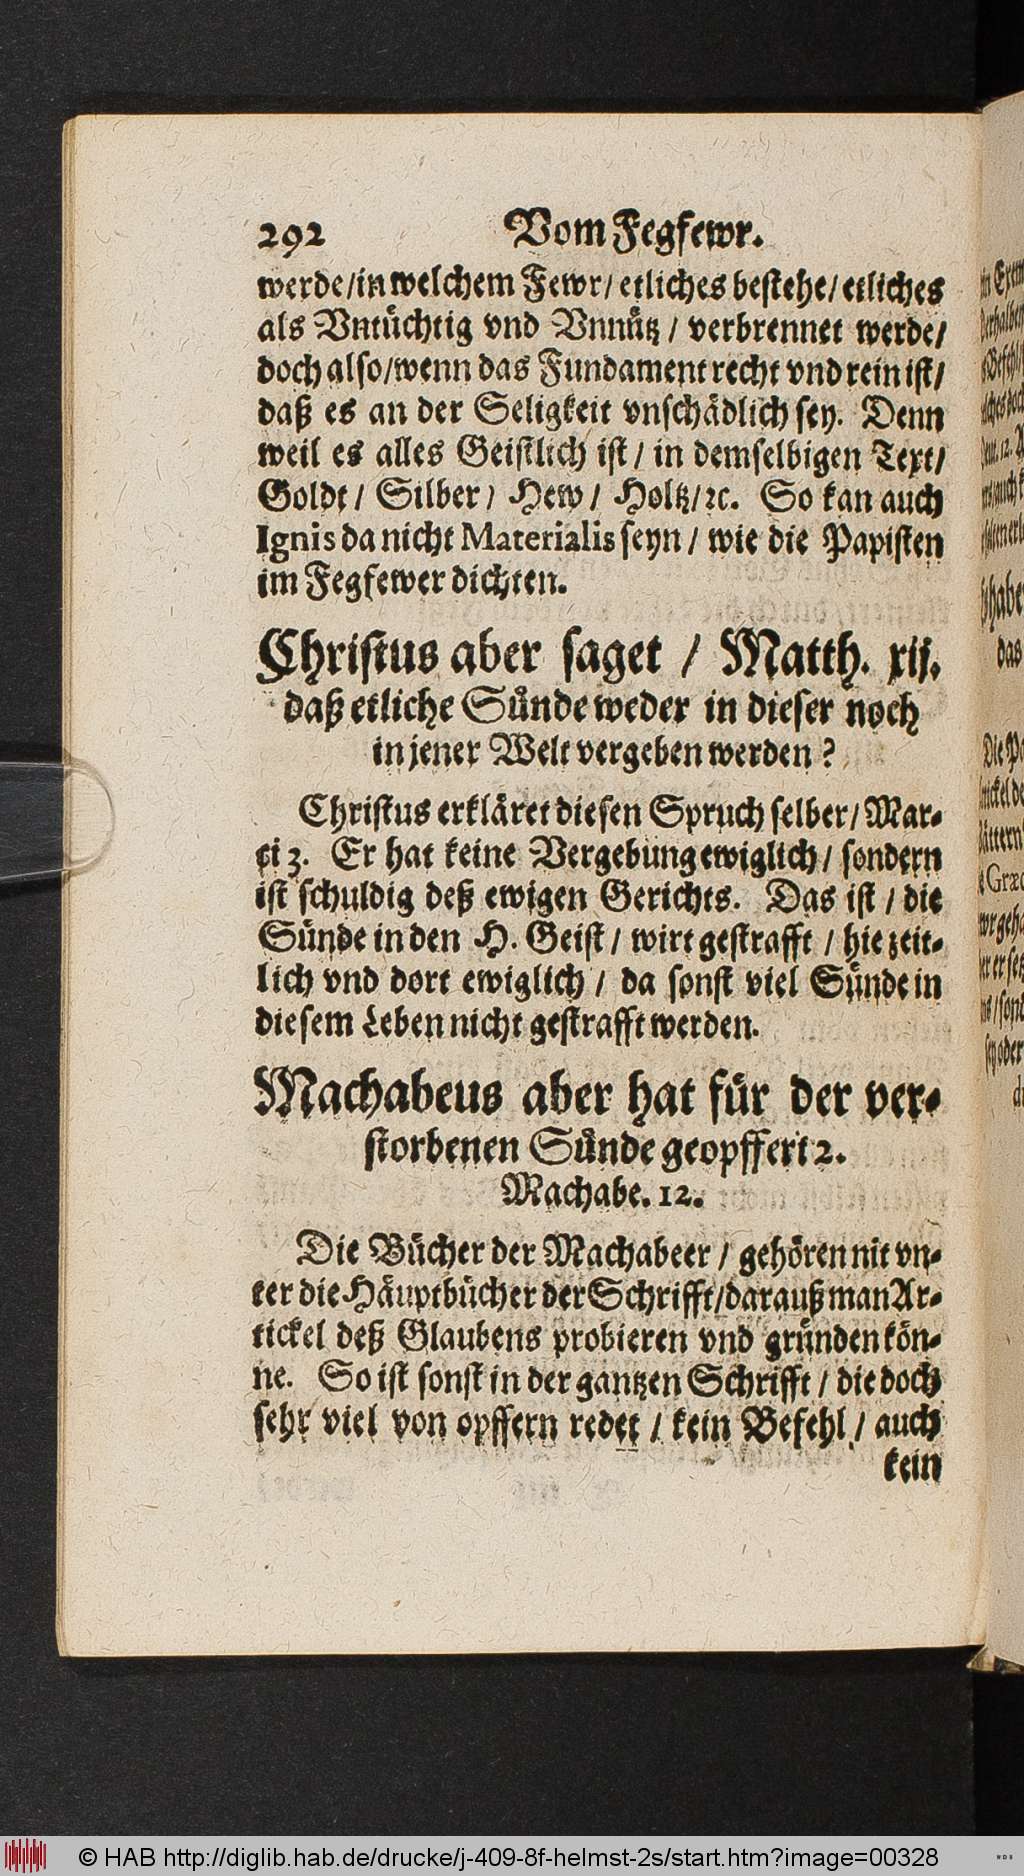 292 Vom Fegfewr.
werde/in welchem Fewr/ etliches bestehe/ etliches
als Vntüchtig vnd Vnnütz / verbrennet werde/
doch also/wenn das Fundament recht vnd rein ist/
daß es an der Seligkeit vnschädlich sey. Denn
weil es alles Geistlich ist / in demselbigen Text/
Goldt / Silber / Hew / Holtz/ ꝛc. So kan auch
Ignis da nicht Materialis seyn / wie die Papisten
im Fegfewer dichten.
Christus aber saget / Matth. xij.
daß etliche Sünde weder in dieser noch
in jener Welt vergeben werden ?
Christus erkläret diesen Spruch selber/ Mar-
ci 3. Er hat keine Vergebung ewiglich / sondern
ist schuldig deß ewigen Gerichts. Das ist / die
Sünde in den H. Geist / wirt gestrafft / hie zeit-
lich vnd dort ewiglich / da sonst viel Sünde in
diesem Leben nicht gestrafft werden.
Machabeus aber hat für der ver-
storbenen Sünde geopffert 2.
Machabe. 12.
Die Bücher der Machabeer / gehören nit vn-
ter die Häuptbücher der Schrifft/darauß man Ar-
tickel deß Glaubens probieren vnd gründen kön-
ne. So ist sonst in der gantzen Schrifft / die doch
sehr viel von opffern redet / kein Befehl / auch
kein
© HAB http://diglib.hab.de/drucke/j-409-8f-helmst-2s/start.htm?image=00328